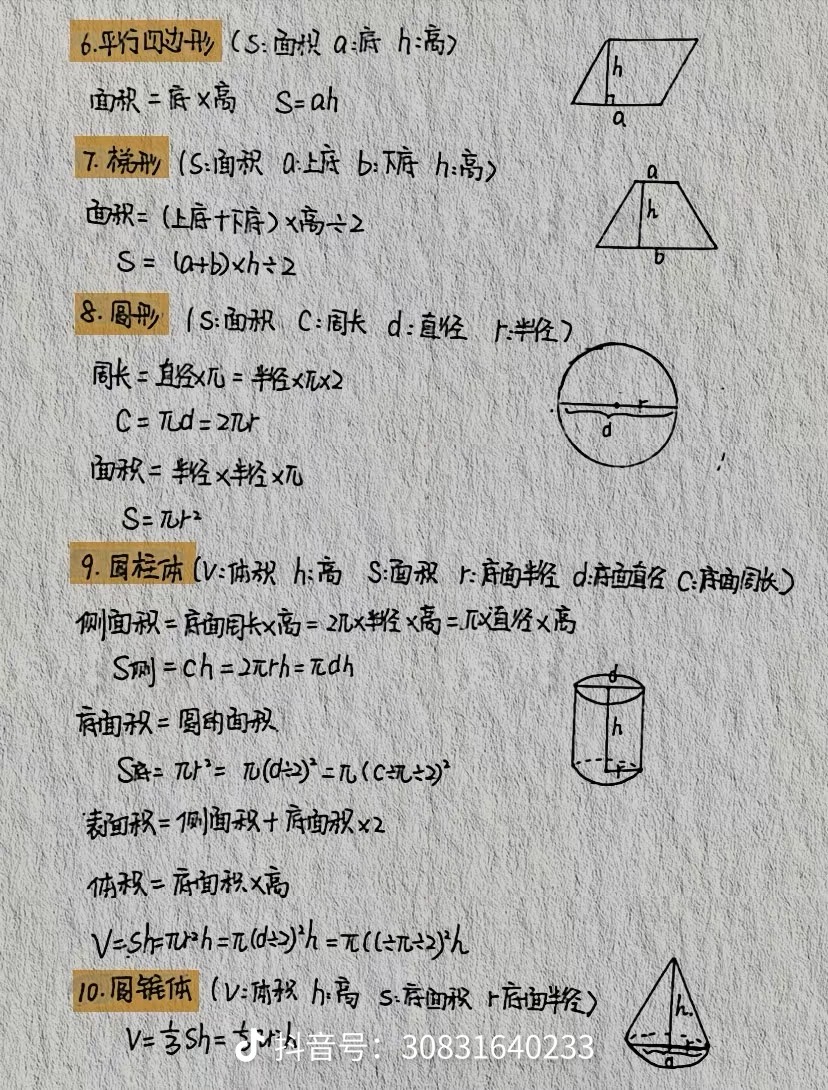 6.平行四边形 (S:面积 a:底 h:高)
面积=底×高 S=ah
h
a
7.梯形 (S:面积 a:上底 b:下底 h:高)
面积=(上底+下底)×高÷2
S=(a+b)×h÷2
a
h
b
8.圆形 (S:面积 C:周长 d:直径 r:半径)
周长=直径×π=半径×π×2
C=πd=2πr
面积=半径×半径×π
S=πr²
r
d
9.圆柱体(V:体积 h:高 S:面积 r:底面半径 d:底面直径 C:底面周长)
侧面积=底面周长×高=2π×半径×高=π×直径×高
S侧=ch=2πrh=πdh
底面积=圆的面积
S底=πr²=π(d÷2)²=π(C÷π÷2)²
表面积=侧面积+底面积×2
体积=底面积×高
V=Sh=πr²h=π(d÷2)²h=π(C÷π÷2)²h
d
h
r
10.圆锥体 (V:体积 h:高 S:底面积 r底面半径)
V=⅓Sh=
h
r
d
抖音号：30831640233